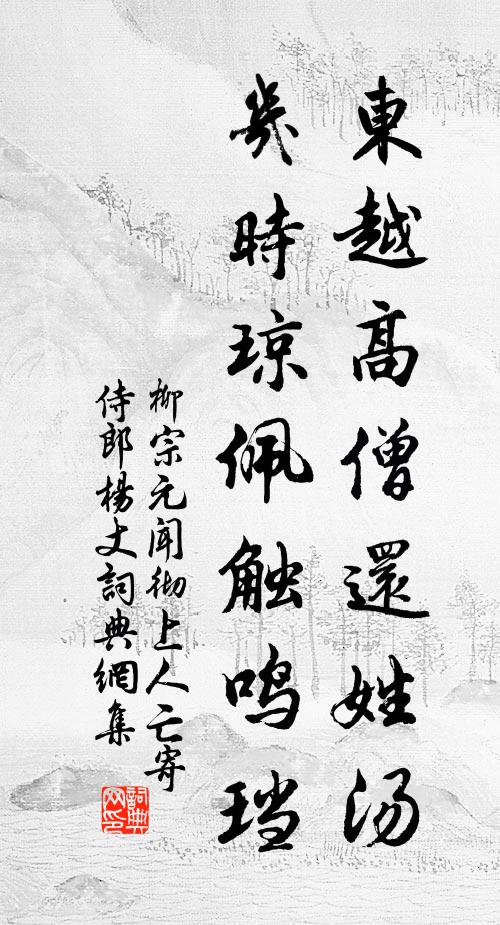 東越高僧還姓汤
幾時琼佩触鸣珰
柳宗元聞彻上人亡寄
侍郎楊丈詞典網集
詞典
网印